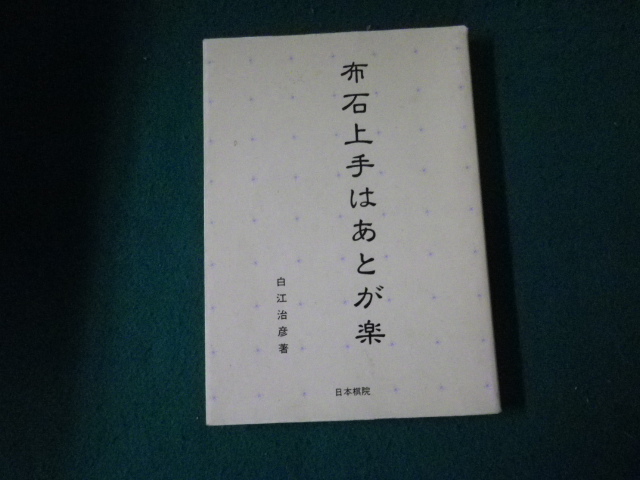 布石上手はあとが楽
白江治彦著
日本棋院